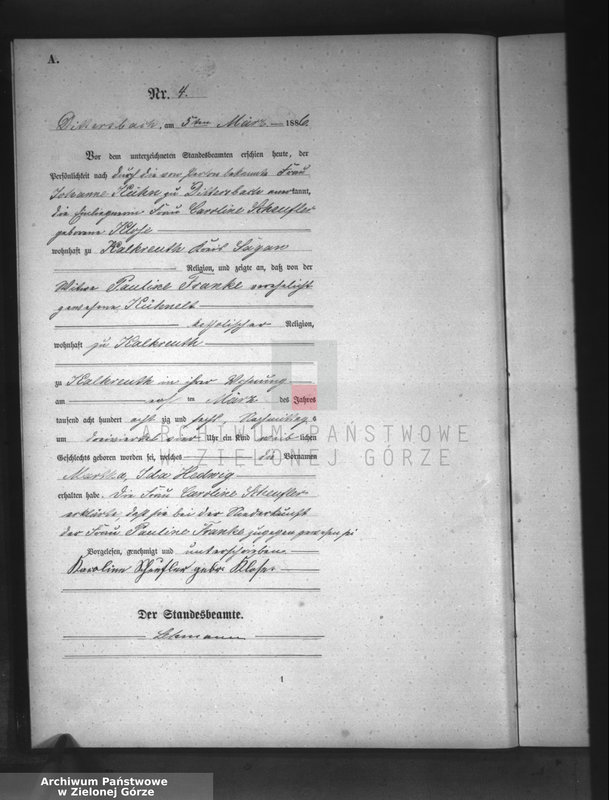 A.
Nr. 4.
Dittersbach, am 5ten März 1886.
Vor dem unterzeichneten Standesbeamten erschien heute, der
Persönlichkeit nach durch die von Person bekannte Frau
Johanne zu Dittersbach anerkannt,
die Frau Caroline Scheufler
geborene Klose
wohnhaft zu Kalkreuth Kreis Sagan
Religion, und zeigte an, daß von der
Witwe Pauline Franke verehelicht
gewesene Kühnelt
katholischer Religion,
wohnhaft zu Kalkreuth
zu Kalkreuth in ihrer Wohnung
am ten März des Jahres
tausend acht hundert acht zig und sechs Nachmittag s
um dreiviertel vier Uhr ein Kind weib lichen
Geschlechts geboren worden sei, welches die Vornamen
Martha, Ida Hedwig
erhalten habe. Die Frau Caroline Scheufler
erklärte, daß sie bei der Niederkunft
der Frau Pauline Franke zugegen gewesen sei
Vorgelesen, genehmigt und unterschrieben.
Karoline Scheufler gebr Klose
Der Standesbeamte.
Lehmann
1
ARCHIWUM PAŃSTWOWE
ZIELONEJ GÓRZE
Archiwum Państwowe
w Zielonej Górze